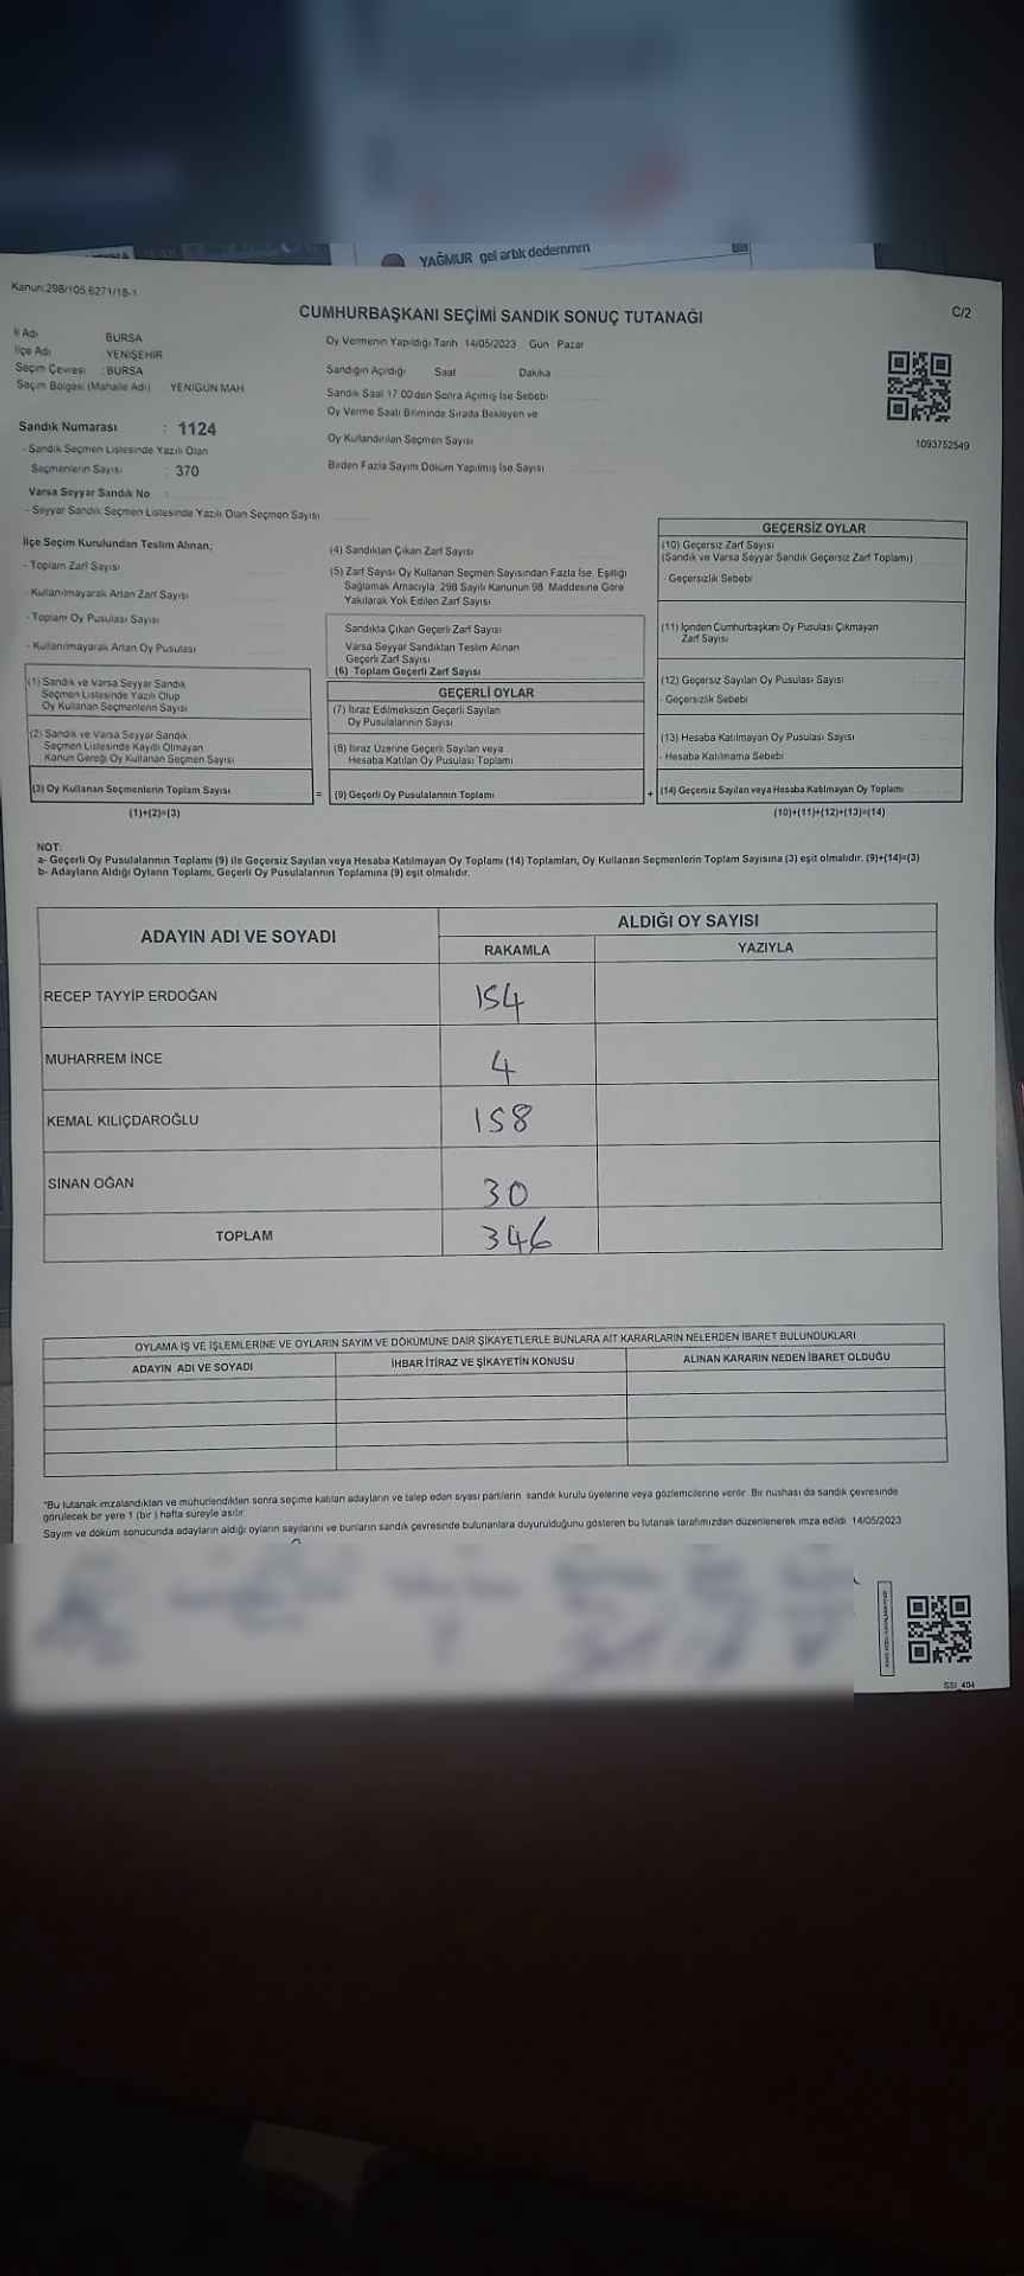 YAĞMUR gel artık dedemmm
Kanun:298/105,6271/18-1
CUMHURBAŞKANI SEÇİMİ SANDIK SONUÇ TUTANAĞI
C/2
İl Adı BURSA
İlçe Adı YENİŞEHİR
Seçim Çevresi : BURSA
Seçim Bölgesi (Mahalle Adı) YENİGÜN MAH.
Sandık Numarası : 1124
- Sandık Seçmen Listesinde Yazılı Olan
Seçmenlerin Sayısı : 370
Varsa Seyyar Sandık No :
- Seyyar Sandık Seçmen Listesinde Yazılı Olan Seçmen Sayısı
Oy Vermenin Yapıldığı Tarih 14/05/2023 Gün Pazar
Sandığın Açıldığı Saat Dakika
Sandık Saat 17.00'den Sonra Açılmış İse Sebebi
Oy Verme Saati Bitiminde Sırada Bekleyen ve
Oy Kullandırılan Seçmen Sayısı
Birden Fazla Sayım Döküm Yapılmış İse Sayısı
1093752549
İlçe Seçim Kurulundan Teslim Alınan;
- Toplam Zarf Sayısı
- Kullanılmayarak Artan Zarf Sayısı
- Toplam Oy Pusulası Sayısı
- Kullanılmayarak Artan Oy Pusulası
(1) Sandık ve Varsa Seyyar Sandık
Seçmen Listesinde Yazılı Olup
Oy Kullanan Seçmenlerin Sayısı
(2) Sandık ve Varsa Seyyar Sandık
Seçmen Listesinde Kayıtlı Olmayan
Kanun Gereği Oy Kullanan Seçmen Sayısı
(3) Oy Kullanan Seçmenlerin Toplam Sayısı
(1)+(2)=(3)
(4) Sandıktan Çıkan Zarf Sayısı
(5) Zarf Sayısı Oy Kullanan Seçmen Sayısından Fazla İse, Eşitliği
Sağlamak Amacıyla, 298 Sayılı Kanunun 98. Maddesine Göre
Yakılarak Yok Edilen Zarf Sayısı
Sandıkta Çıkan Geçerli Zarf Sayısı
Varsa Seyyar Sandıktan Teslim Alınan
Geçerli Zarf Sayısı
(6) Toplam Geçerli Zarf Sayısı
GEÇERLİ OYLAR
(7) İtiraz Edilmeksizin Geçerli Sayılan
Oy Pusulalarının Sayısı
(8) İtiraz Üzerine Geçerli Sayılan veya
Hesaba Katılan Oy Pusulası Toplamı
= (9) Geçerli Oy Pusulalarının Toplamı
GEÇERSİZ OYLAR
(10) Geçersiz Zarf Sayısı
(Sandık ve Varsa Seyyar Sandık Geçersiz Zarf Toplamı)
- Geçersizlik Sebebi
(11) İçinden Cumhurbaşkanı Oy Pusulası Çıkmayan
Zarf Sayısı
(12) Geçersiz Sayılan Oy Pusulası Sayısı
- Geçersizlik Sebebi
(13) Hesaba Katılmayan Oy Pusulası Sayısı
- Hesaba Katılmama Sebebi
+ (14) Geçersiz Sayılan veya Hesaba Katılmayan Oy Toplamı
(10)+(11)+(12)+(13)=(14)
NOT:
a- Geçerli Oy Pusulalarının Toplamı (9) ile Geçersiz Sayılan veya Hesaba Katılmayan Oy Toplamı (14) Toplamları, Oy Kullanan Seçmenlerin Toplam Sayısına (3) eşit olmalıdır. (9)+(14)=(3)
b- Adayların Aldığı Oyların Toplamı, Geçerli Oy Pusulalarının Toplamına (9) eşit olmalıdır.
ADAYIN ADI VE SOYADI
ALDIĞI OY SAYISI
RAKAMLA YAZIYLA
RECEP TAYYİP ERDOĞAN 154
MUHARREM İNCE 4
KEMAL KILIÇDAROĞLU 158
SİNAN OĞAN 30
TOPLAM 346
OYLAMA İŞ VE İŞLEMLERİNE VE OYLARIN SAYIM VE DÖKÜMÜNE DAİR ŞİKAYETLERLE BUNLARA AİT KARARLARIN NELERDEN İBARET BULUNDUKLARI
ADAYIN ADI VE SOYADI İHBAR İTİRAZ VE ŞİKAYETİN KONUSU ALINAN KARARIN NEDEN İBARET OLDUĞU
*Bu tutanak imzalandıktan ve mühürlendikten sonra seçime katılan adayların ve talep eden siyasi partilerin sandık kurulu üyelerine veya gözlemcilerine verilir. Bir nüshası da sandık çevresinde
görülecek bir yere 1 (bir) hafta süreyle asılır.
Sayım ve döküm sonucunda adayların aldığı oyların sayılarını ve bunların sandık çevresinde bulunanlara duyurulduğunu gösteren bu tutanak tarafımızdan düzenlenerek imza edildi. 14/05/2023
SSI_404